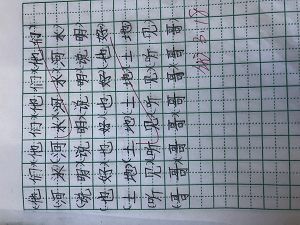 (他们)(他们)(他们)(他们)
(河水)(河水)(河水)(河水)
(说明)(说明)(说明)(说明)
(也好)(也好)(也好)(也好)
(土地)(土地)(土地)(土地)
(听见)(听见)(听见)(听见)
(哥哥)(哥哥)(哥哥)(哥哥)
3.18